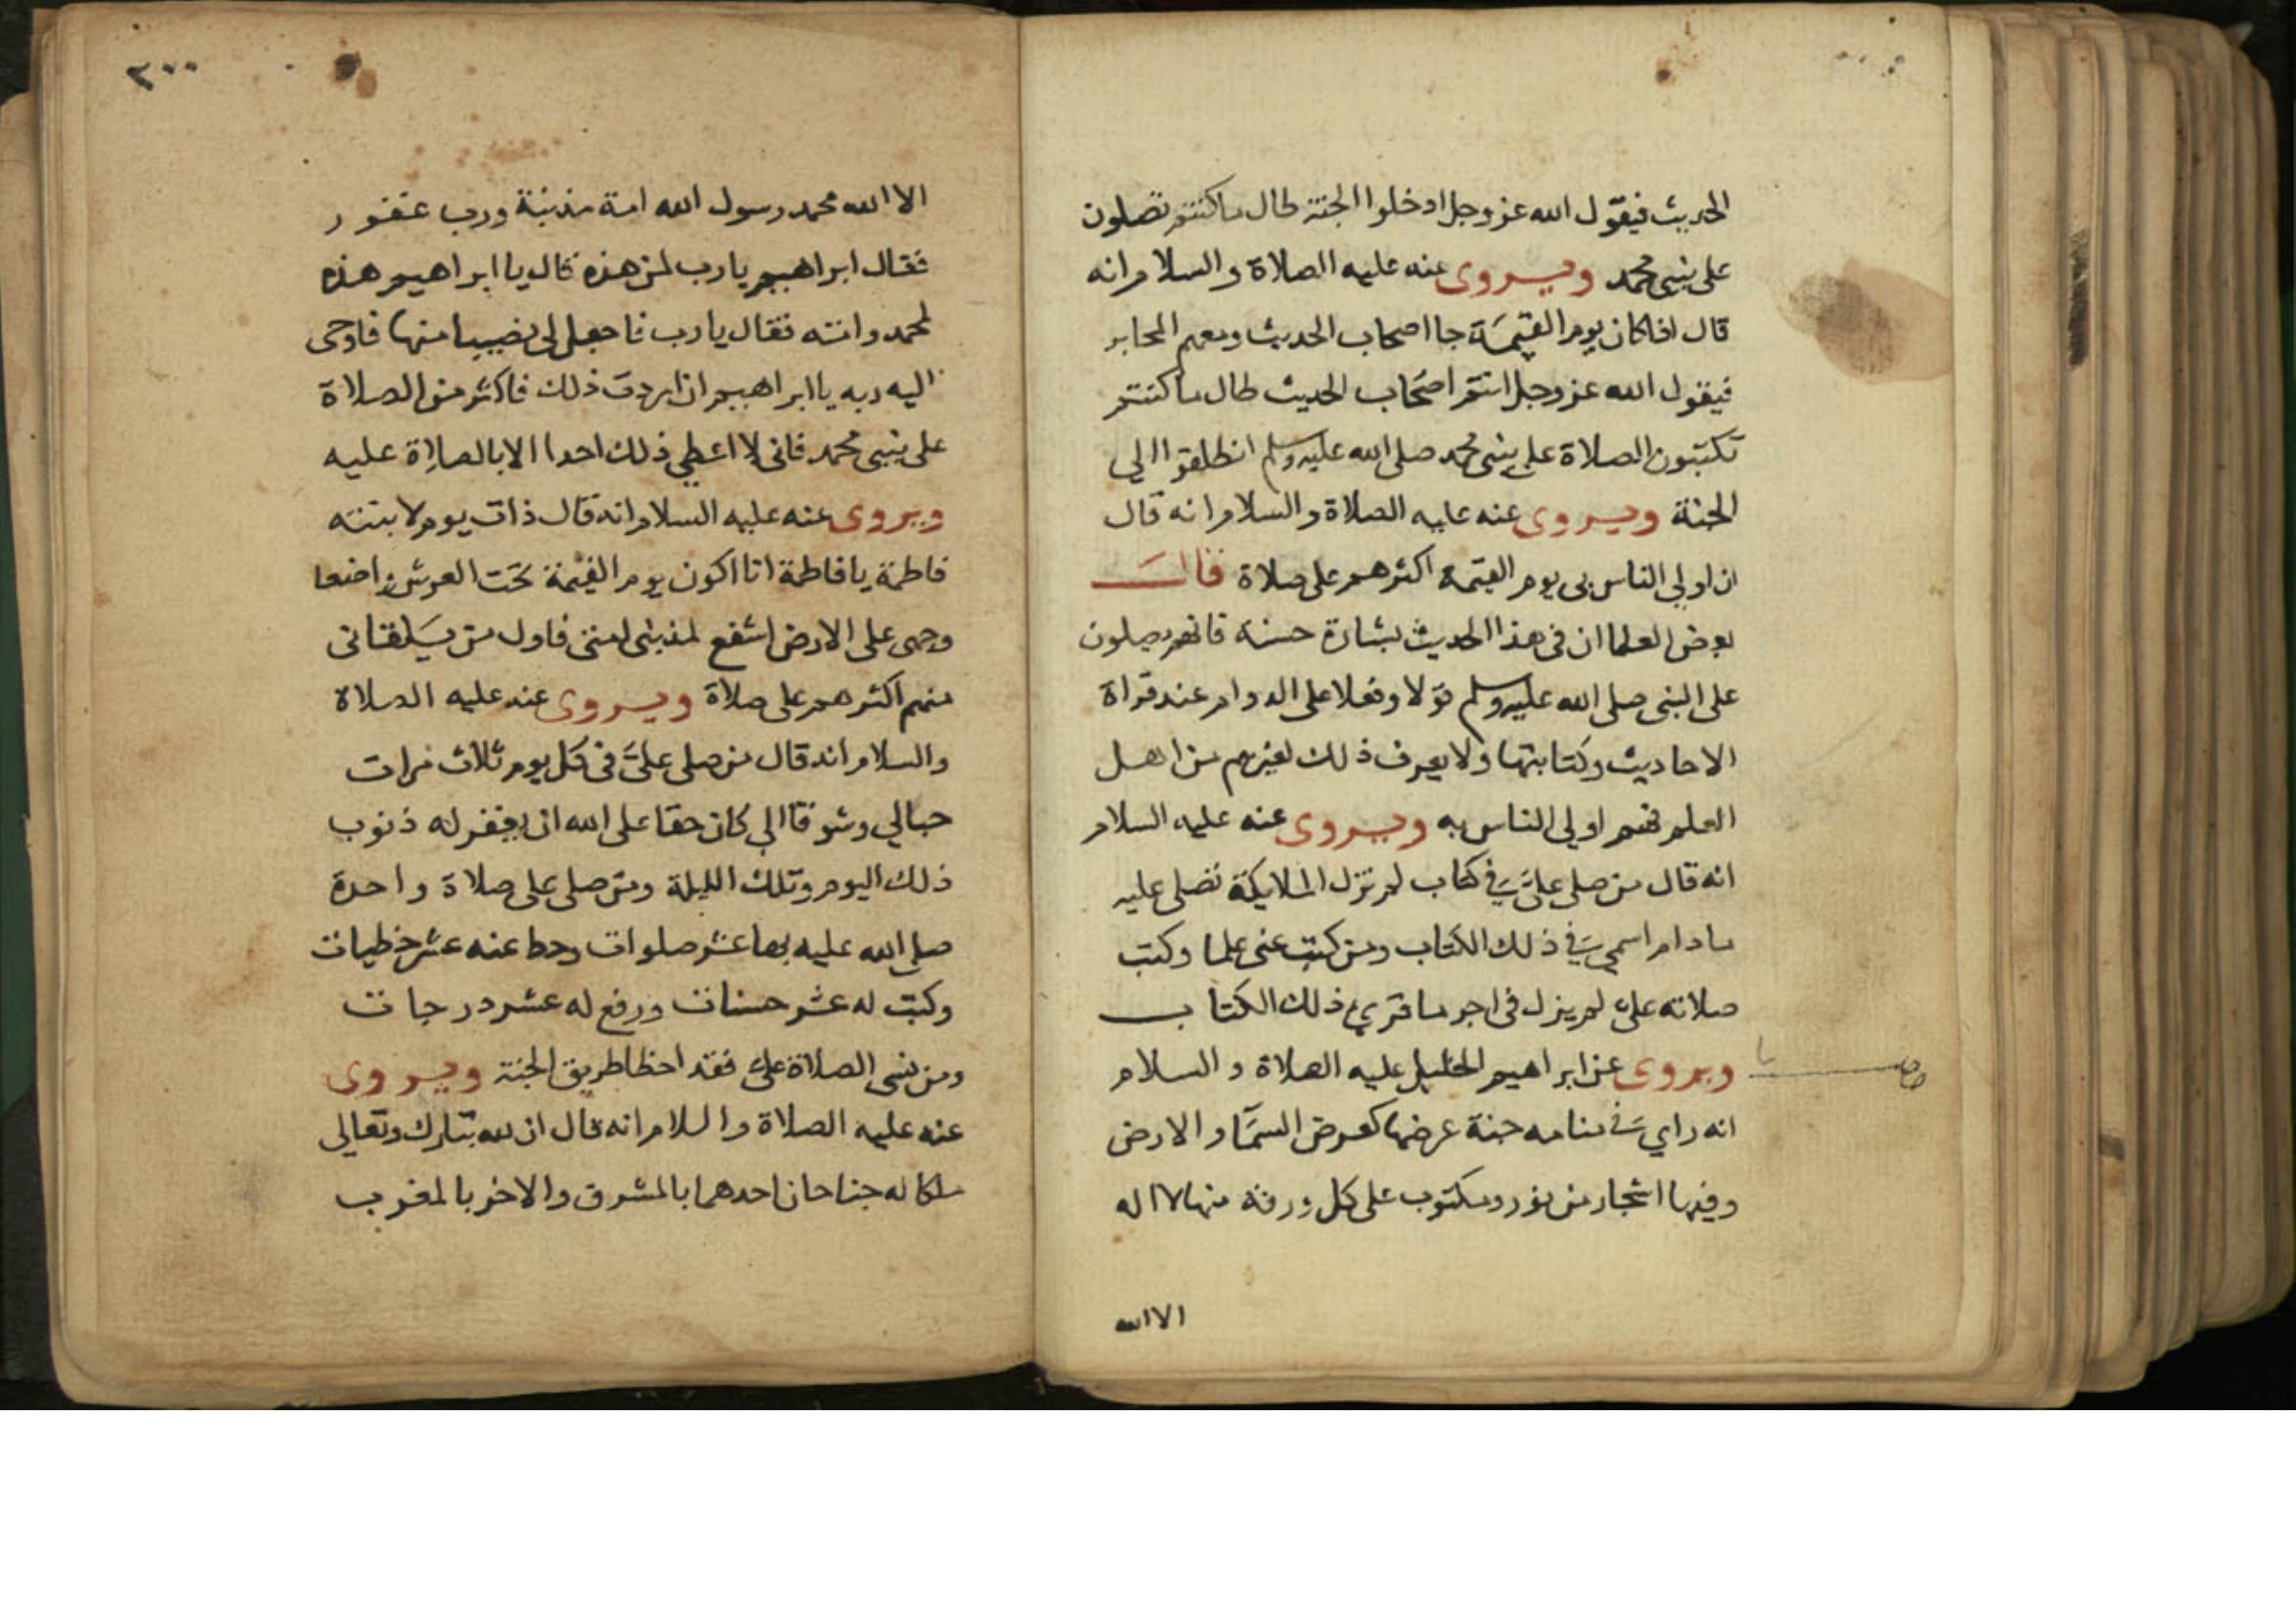 الحديث فيقول الله عز وجل ادخلوا الجنة طال ما كنتم تصلون
على نبيي محمد ويروى عنه عليه الصلاة والسلام انه
قال اذا كان يوم القيمة جا اصحاب الحديث ومعهم المحابر
فيقول الله عز وجل انتم اصحاب الحديث طال ما كنتم
تكتبون الصلاة على نبيي محمد صلى الله عليه وسلم انطلقوا الي
الجنة ويروى عنه عليه الصلاة والسلام انه قال
ان اولي الناس بي يوم القيمة اكثرهم على صلاة قال
بعض العلما ان في هذا الحديث بشارة حسنة فانهم يصلون
على النبي صلى الله عليه وسلم قولا وفعلا على الدوام عند قراة
الاحاديث وكتابتها ولا يعرف ذلك لغيرهم من اهل
العلم فهم اولي الناس به ويروى عنه عليه السلام
انه قال من صلى علىّ في كتاب لم تزل الملايكة تصلى عليه
ما دام اسمي في ذلك الكتاب ومن كتب عنى علما وكتب
صلاته علىّ لم يزل فى اجر ما قري ذلك الكتاب
ويروى عن ابراهيم الخليل عليه الصلاة والسلام
انه راي في منامه جنة عرضها كعرض السما والارض
وفيها اشجار من نور ومكتوب على كل ورقة منها لا اله
الا الله
٢٠٠
الا الله محمد رسول الله امة مذنبة ورب غفور
فقال ابراهيم يا رب لمن هذه قال يا ابراهيم هذه
لمحمد وامته فقال يا رب فاجعل لى نصيبا منها فاوحى
اليه ربه يا ابراهيم ان اردت ذلك فاكثر من الصلاة
على نبيي محمد فانى لا اعطي ذلك احدا الا بالصلاة عليه
ويروى عنه عليه السلام انه قال ذات يوم لابنته
فاطمة يا فاطمة انا اكون يوم القيمة تحت العرش واضعا
وجهى على الارض اشفع لمذنبى امتى فاول من يلقانى
منهم اكثرهم على صلاة ويروى عنه عليه الصلاة
والسلام انه قال من صلى علىّ فى كل يوم ثلاث مرات
حبالي وشوقا الي كان حقا على الله ان يغفر له ذنوب
ذلك اليوم وتلك الليلة ومن صلى على صلاة واحدة
صلى الله عليه بها عشر صلوات وحط عنه عشر خطيات
وكتب له عشر حسنات ورفع له عشر درجات
ومن نسى الصلاة علىّ فقد اخطا طريق الجنة ويروى
عنه عليه الصلاة والسلام انه قال ان لله تبارك وتعالى
ملكا له جناحان احدهما بالمشرق والاخر بالمغرب